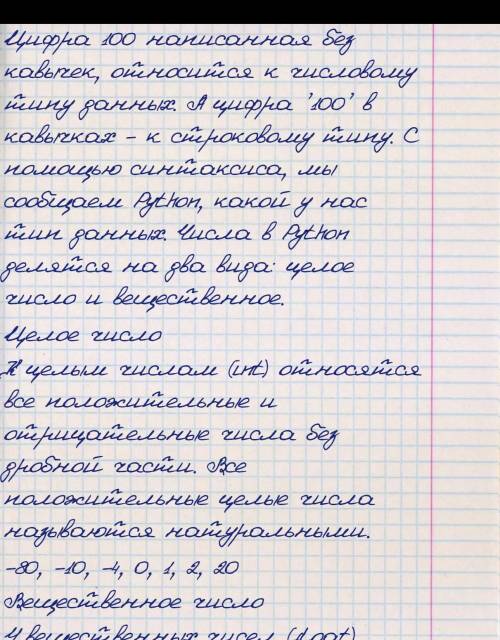 Цифра 100 написанная без
кавычек, относится к числовому
типу данных. А цифра '100' в
кавычках - к строковому типу. С
помощью синтаксиса, мы
сообщаем Python, какой у нас
тип данных. Числа в Python
делятся на два вида: целое
число и вещественное.
Целое число
К целым числам (int) относятся
все положительные и
отрицательные числа без
дробной части. Все
положительные целые числа
называются натуральными.
-80, -10, -4, 0, 1, 2, 20
Вещественное число
У вещественных чисел (float)